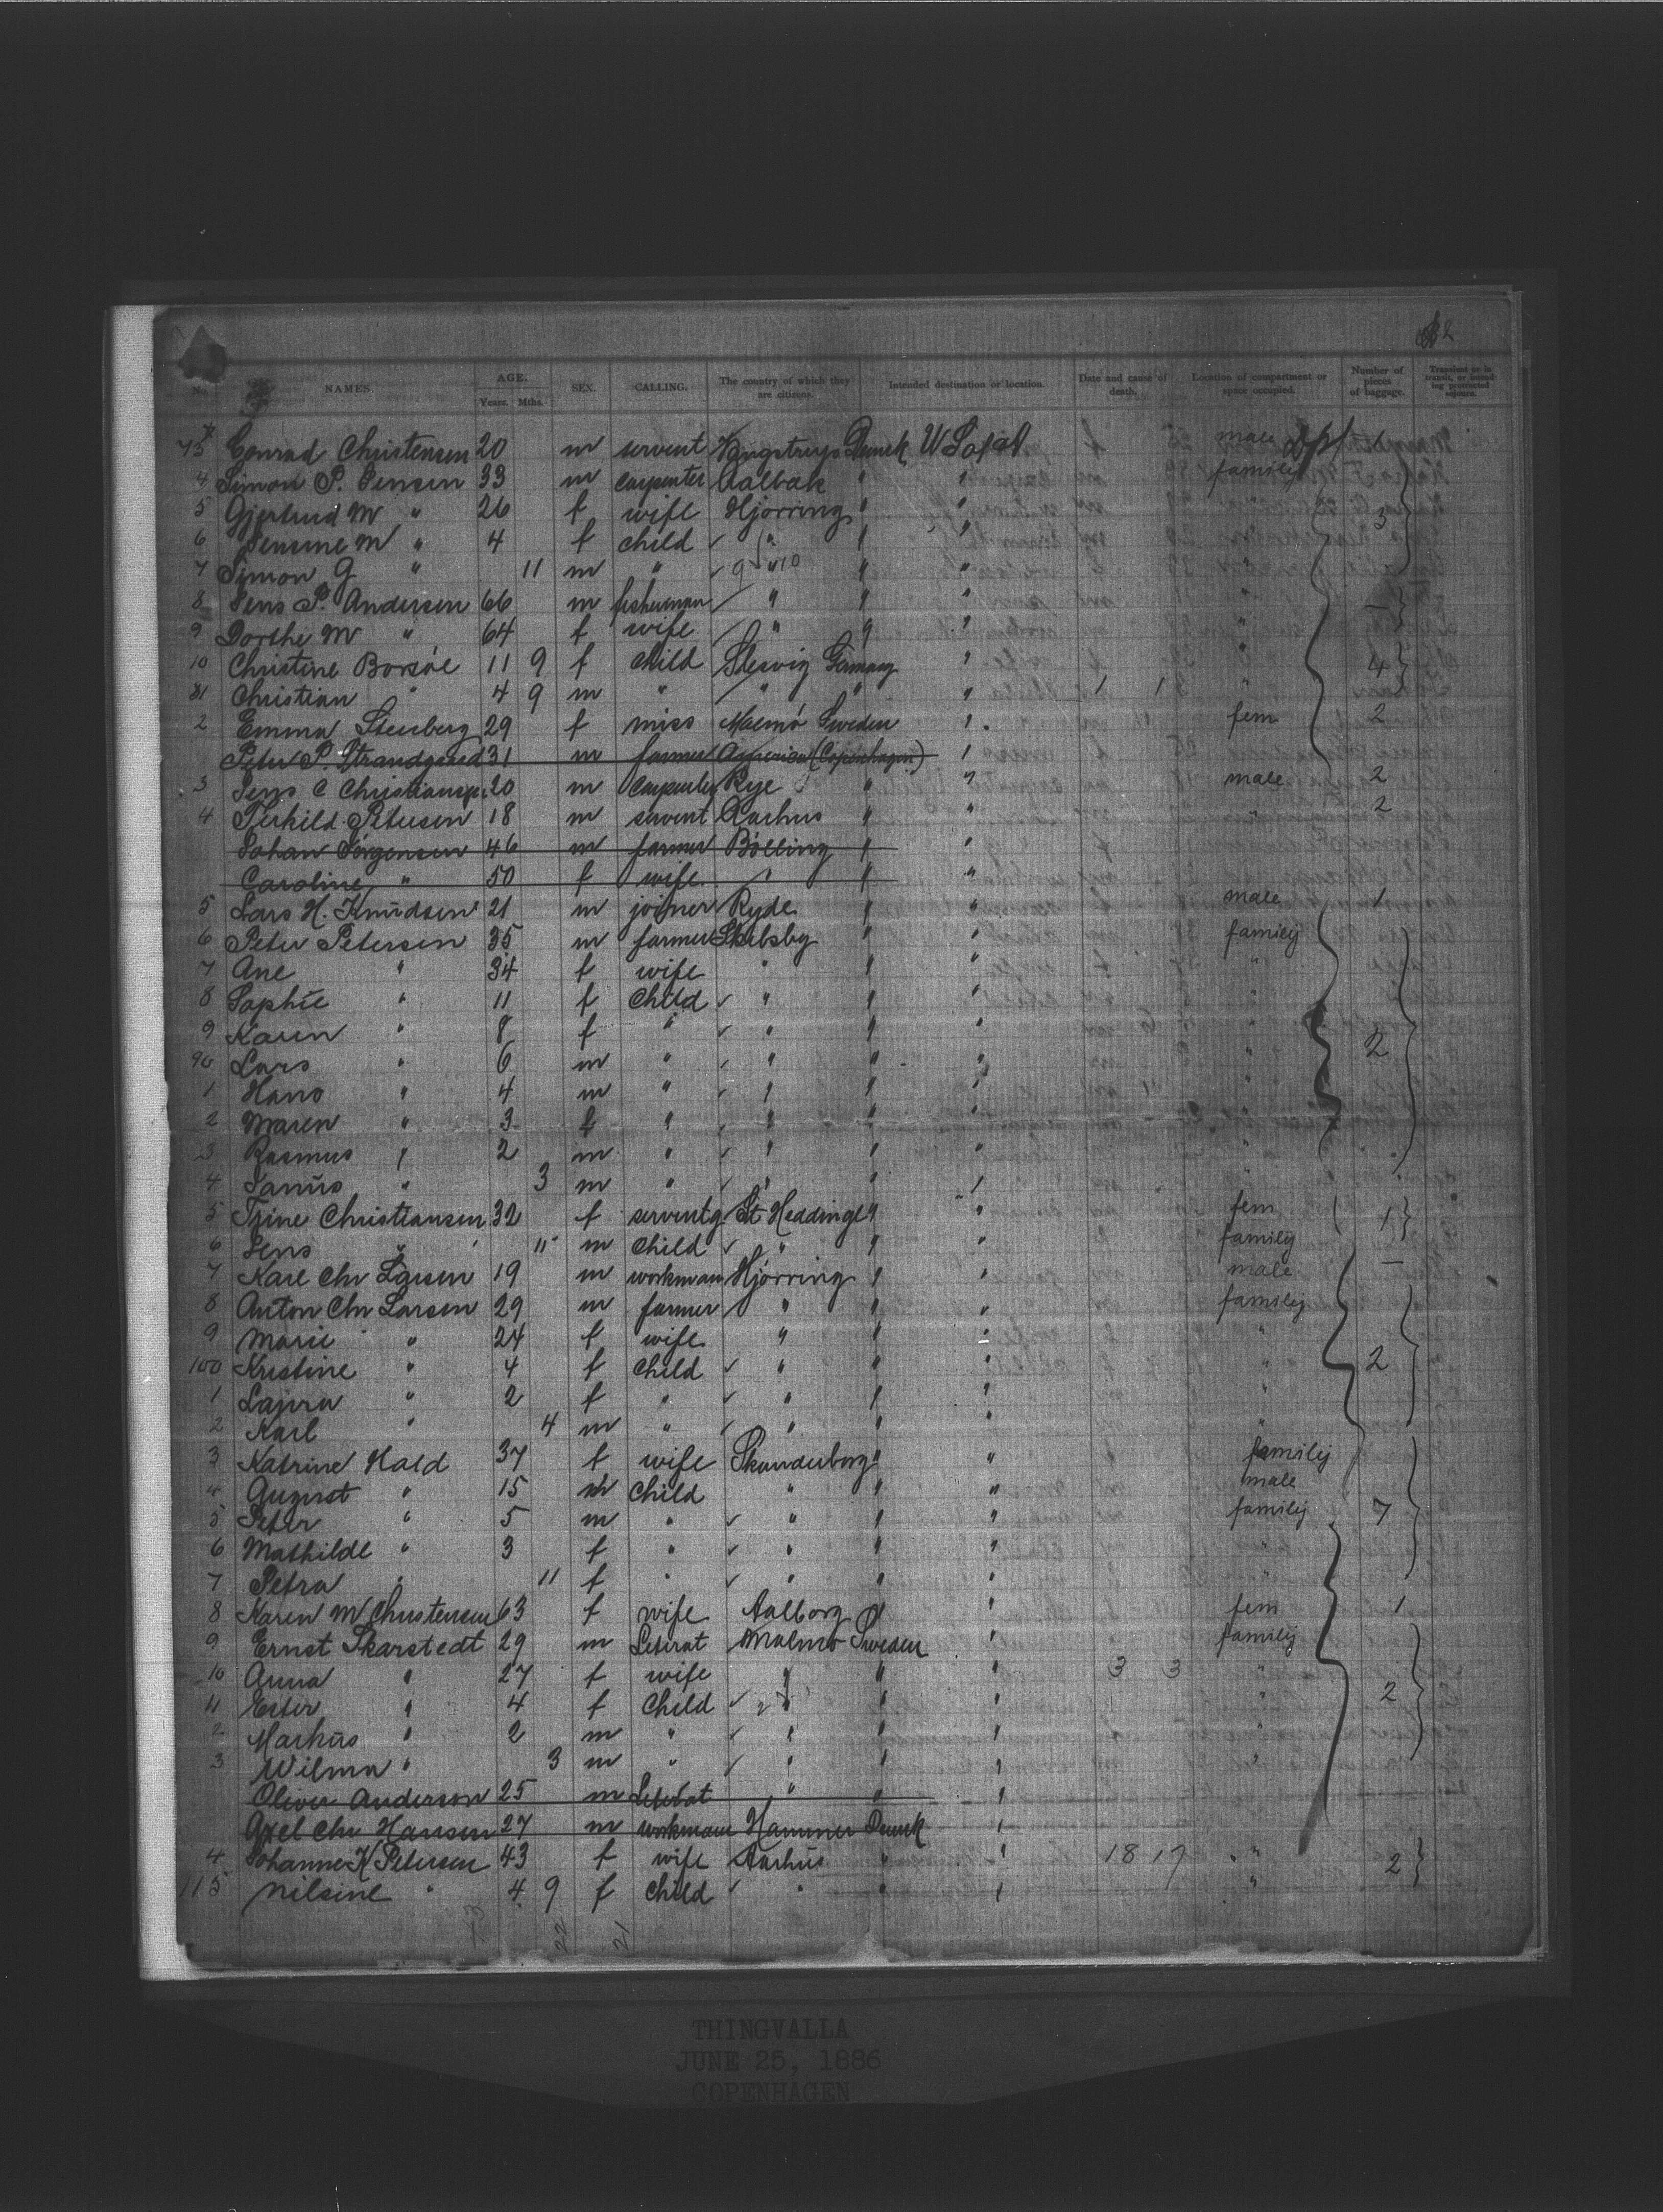 No. NAMES. AGE. Years. Mths. SEX. CALLING. The country of which they are citizens. Intended destination or location. Date and cause of death. Location of compartment or space occupied. Number of pieces of baggage. Transient or in transit, or intending protracted sojourn.
Conrad Christensen 20 m servent Denmk male 1
4 Simon P. Jensen 33 m carpenter Aalbak " " family
5 Gjertrud M " 26 f wife Hjørring " " 3
6 Jensine M " 4 f child " " "
7 Simon G " 11 m " 9 " 10 " " "
8 Jens P. Andersen 66 m fisherman " " " " —
9 Dorthe M " 64 f wife " " " "
10 Christine Borsøe 11 9 f child Slesvig Germany " " 4
81 Christian " 4 9 m " " " " 1 1 "
2 Emma Stenberg 29 f miss Malmö Sweden " fem 2
Peter P. Strandgaard 31 m farmer America (Copenhagen) "
3 Jens C Christiansen 20 m carpenter Rye " " male 2
4 Terkild Petersen 18 m servent Aarhus " " " 2
Johan Jörgensen 46 m farmer Bölling " "
Caroline " 50 f wife " " "
5 Lars H. Knudsen 21 m joiner Ryde " " male 1
6 Peter Petersen 35 m farmer Skibsby " " family
7 Ane " 34 f wife " " " "
8 Sophie " 11 f child " " " "
9 Karen " 8 f " " " " "
90 Lars " 6 m " " " " " 2
1 Hans " 4 m " " " " "
2 Maren " 3 f " " " " "
3 Rasmus " 2 m " " " " "
4 Janus " 3 m " " " " "
5 Trine Christiansen 32 f serventg. St Heddinge " " fem 1
6 Jens " 11 m child " " " family
7 Karl Chr Larsen 19 m workman Hjørring " " male —
8 Anton Chr Larsen 29 m farmer " " " family
9 Marie " 24 f wife " " " "
100 Kristine " 4 f child " " " " 2
1 Laura " 2 f " " " " "
2 Karl " 4 m " " " " "
3 Katrine Hald 37 f wife Skanderborg " " family
4 August " 15 m child " " " male
5 Peter " 5 m " " " " family 7
6 Mathilde " 3 f " " " " "
7 Petra " 11 f " " " " "
8 Karen M Christensen 63 f wife Aalborg " " fem 1
9 Ernst Skarstedt 29 m Literat Malmö Sweden " family
10 Anna " 27 f wife " " " 3 3 "
11 Ester " 4 f child " " " " 2
2 Markus " 2 m " " " " "
3 Wilma " 3 m " " " " "
Oliver Anderson 25 m Literat " " "
Axel Chr Hansen 27 m workman Hammer Denmk "
4 Johanne K Petersen 43 f wife Aarhus " " 18 17 " " 2
115 Nilsine " 4 9 f child " " " "
22 21
THINGVALLA
JUNE 25, 1886
COPENHAGEN